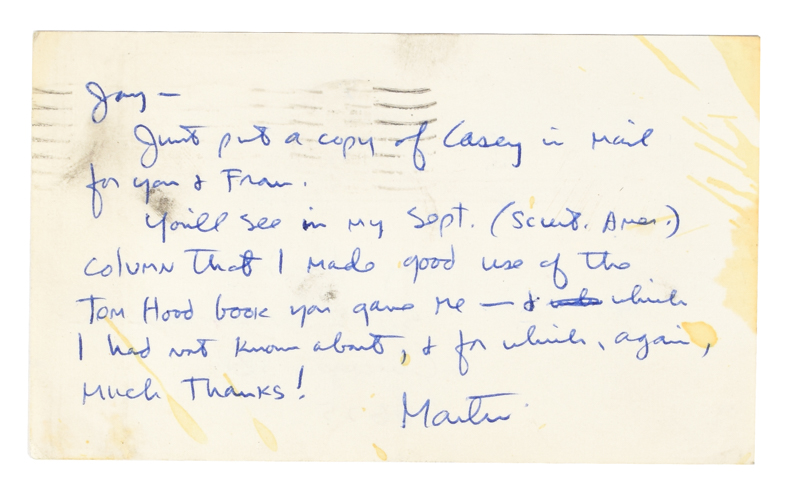 Jay —
Just put a copy of Casey in mail
for you & Fran.
You'll see in my Sept. (Scient. Amer.)
column that I made good use of the
Tom Hood book you gave me — & which
I had not known about, & for which, again,
much thanks!
Martin